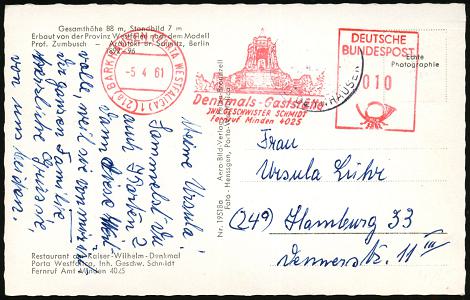 Gesamthöhe 88 m, Standbild 7 m
Erbaut von der Provinz Westfalen nach dem Modell
Prof. Zumbusch - Architekt Br. Schmitz, Berlin
(21a) BARKHAUSEN (PORTA WESTFALICA) 1
-5 4 61
Denkmals-Gaststätte
INH. GESCHWISTER SCHMIDT
Fernruf Minden 4025
DEUTSCHE
BUNDESPOST
010
Echte
Photographie
Meine Ursula!
Sammelst du
auch Karten?
Dann diese
weil sie von mir
Familie
herzliche Grüsse
von uns beiden.
Nr. 19518a
Aero-Bild-Verlag
Foto - Henssgen, Porta
Frau
Ursula Lühr
(24) Hamburg 33
11 III
Restaurant am Kaiser-Wilhelm-Denkmal
Porta Westfalica, Inh. Geschw. Schmidt
Fernruf Amt Minden 4025